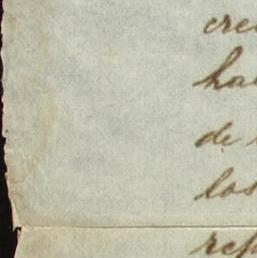 cre
ha
de
los
rep